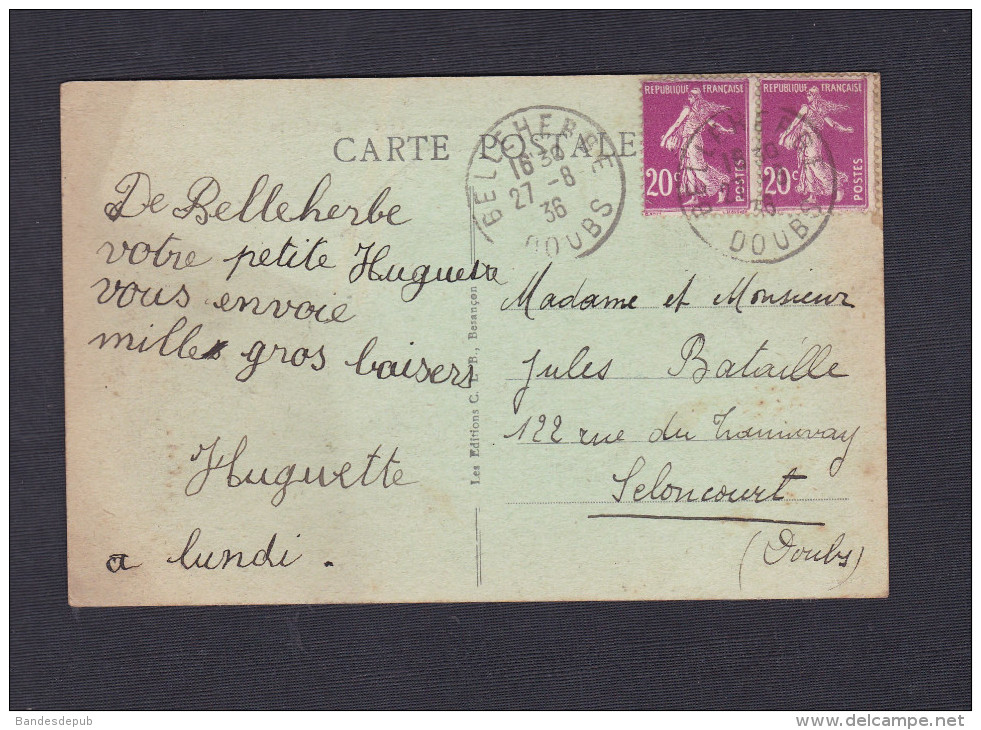 CARTE POSTALE
BELLEHERBE
16 30
27 -8
36
DOUBS
REPUBLIQUE FRANÇAISE
20c
POSTES
REPUBLIQUE FRANÇAISE
20c
POSTES
DOUBS
De Belleherbe
votre petite Huguette
vous envoie
mille gros baisers
Huguette
a lundi.
Les Editions C. L. B., Besançon
Madame et Monsieur
Jules Bataille
122 rue du Tramway
Seloncourt
(Doubs)
Bandesdepub
www.delcampe.net